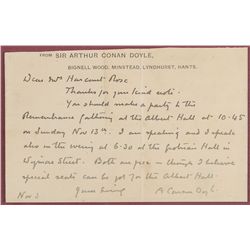 FROM SIR ARTHUR CONAN DOYLE,
BIGNELL WOOD, MINSTEAD, LYNDHURST, HANTS.
Dear Mrs Harcourt Rose
Thanks for your kind note.
You should make a party to the
Remembrance gathering at the Albert Hall at 10.45
on Sunday Nov 13th. I am speaking and I speak
also in the evening at 6.30 at the Grotrian Hall in
Wigmore Street. Both are free – though I believe
special seats can be got for the Albert Hall.
Yours Sincerely
Nov 3 A Conan Doyle